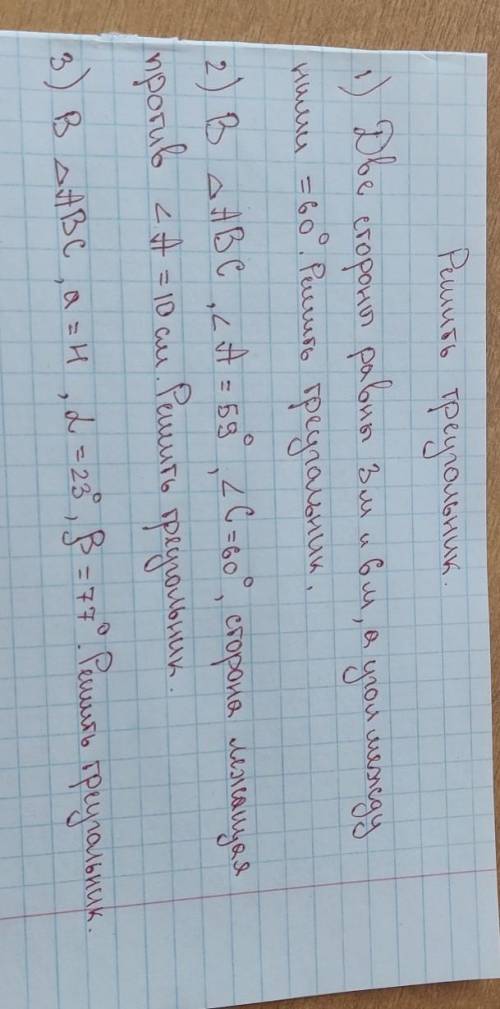 Решить треугольник.
1) Две стороны равны 3 м и 6 м, а угол между
ними = 60°. Решить треугольник.
2) В △ABC, ∠A = 59°, ∠C = 60°, сторона лежащая
против ∠A = 10 см. Решить треугольник.
3) В △ABC, a = 4, α = 23°, β = 77°. Решить треугольник.